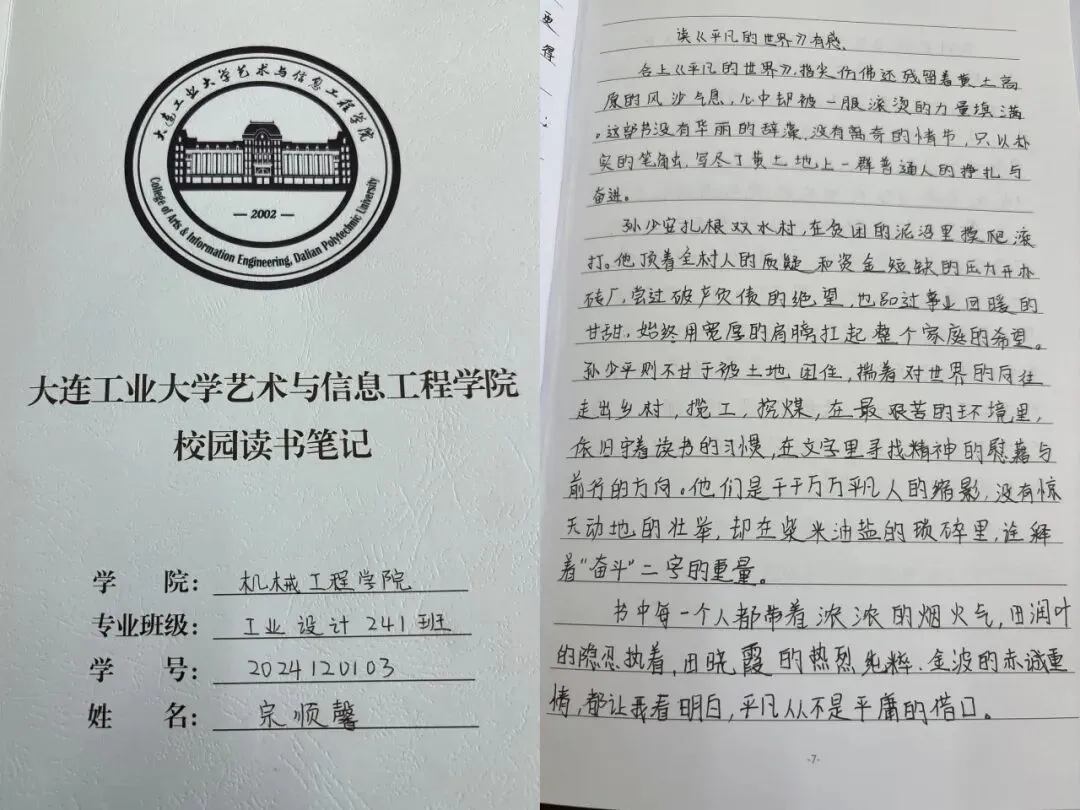 大连工业大学艺术与信息工程学院
2002
College of Arts & Information Engineering, Dalian Polytechnic University
大连工业大学艺术与信息工程学院
校园读书笔记
学 院: 机械工程学院
专业班级: 工业设计241班
学 号: 2024120103
姓 名: 宗顺馨
更
得
读《平凡的世界》有感
合上《平凡的世界》,指尖仿佛还残留着黄土高
原的风沙气息,心中却被一股滚烫的力量填满
。这部书没有华丽的辞藻,没有离奇的情节,只以朴
实的笔触,写尽了黄土地上一群普通人的挣扎与
奋进。
孙少安扎根双水村,在贫困的泥沼里摸爬滚
打。他顶着全村人的质疑和资金短缺的压力开办
砖厂,尝过破产负债的绝望,也品过事业回暖的
甘甜,始终用宽厚的肩膀扛起整个家庭的希望。
孙少平则不甘于被土地困住,揣着对世界的向往
走出乡村,揽工,挖煤,在最艰苦的环境里,
依旧守着读书的习惯,在文字里寻找精神的慰藉与
前行的方向。他们是千千万万平凡人的缩影,没有惊
天动地的壮举,却在柴米油盐的琐碎里,诠释
着"奋斗"二字的重量。
书中每一个人都带着浓浓的烟火气,田润叶
的隐忍执着,田晓霞的热烈纯粹.金波的赤诚重
情,都让我看明白,平凡从不是平庸的借口。
-7-